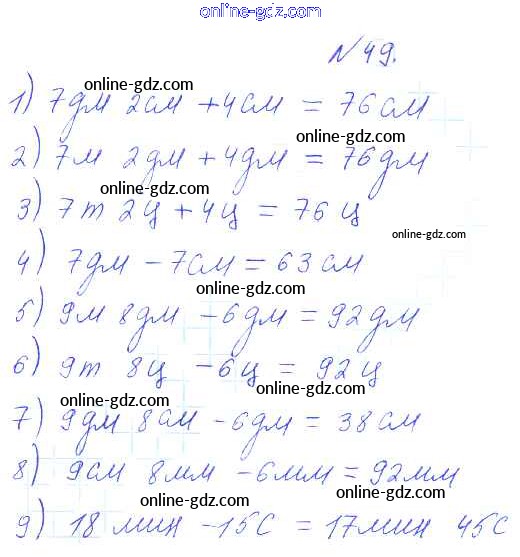 online-gdz.com
№ 49.
online-gdz.com
1) 7дм 2см + 4см = 76см
online-gdz.com
2) 7м 2дм + 4дм = 76дм
online-gdz.com
3) 7т 2ц + 4ц = 76ц
online-gdz.com
4) 7дм - 7см = 63см
online-gdz.com
5) 9м 8дм - 6дм = 92дм
online-gdz.com
6) 9т 8ц - 6ц = 92ц
online-gdz.com
online-gdz.com
7) 9дм 8см - 6дм = 38см
online-gdz.com
8) 9см 8мм - 6мм = 92мм
online-gdz.com
9) 18 мин - 15с = 17мин 45с